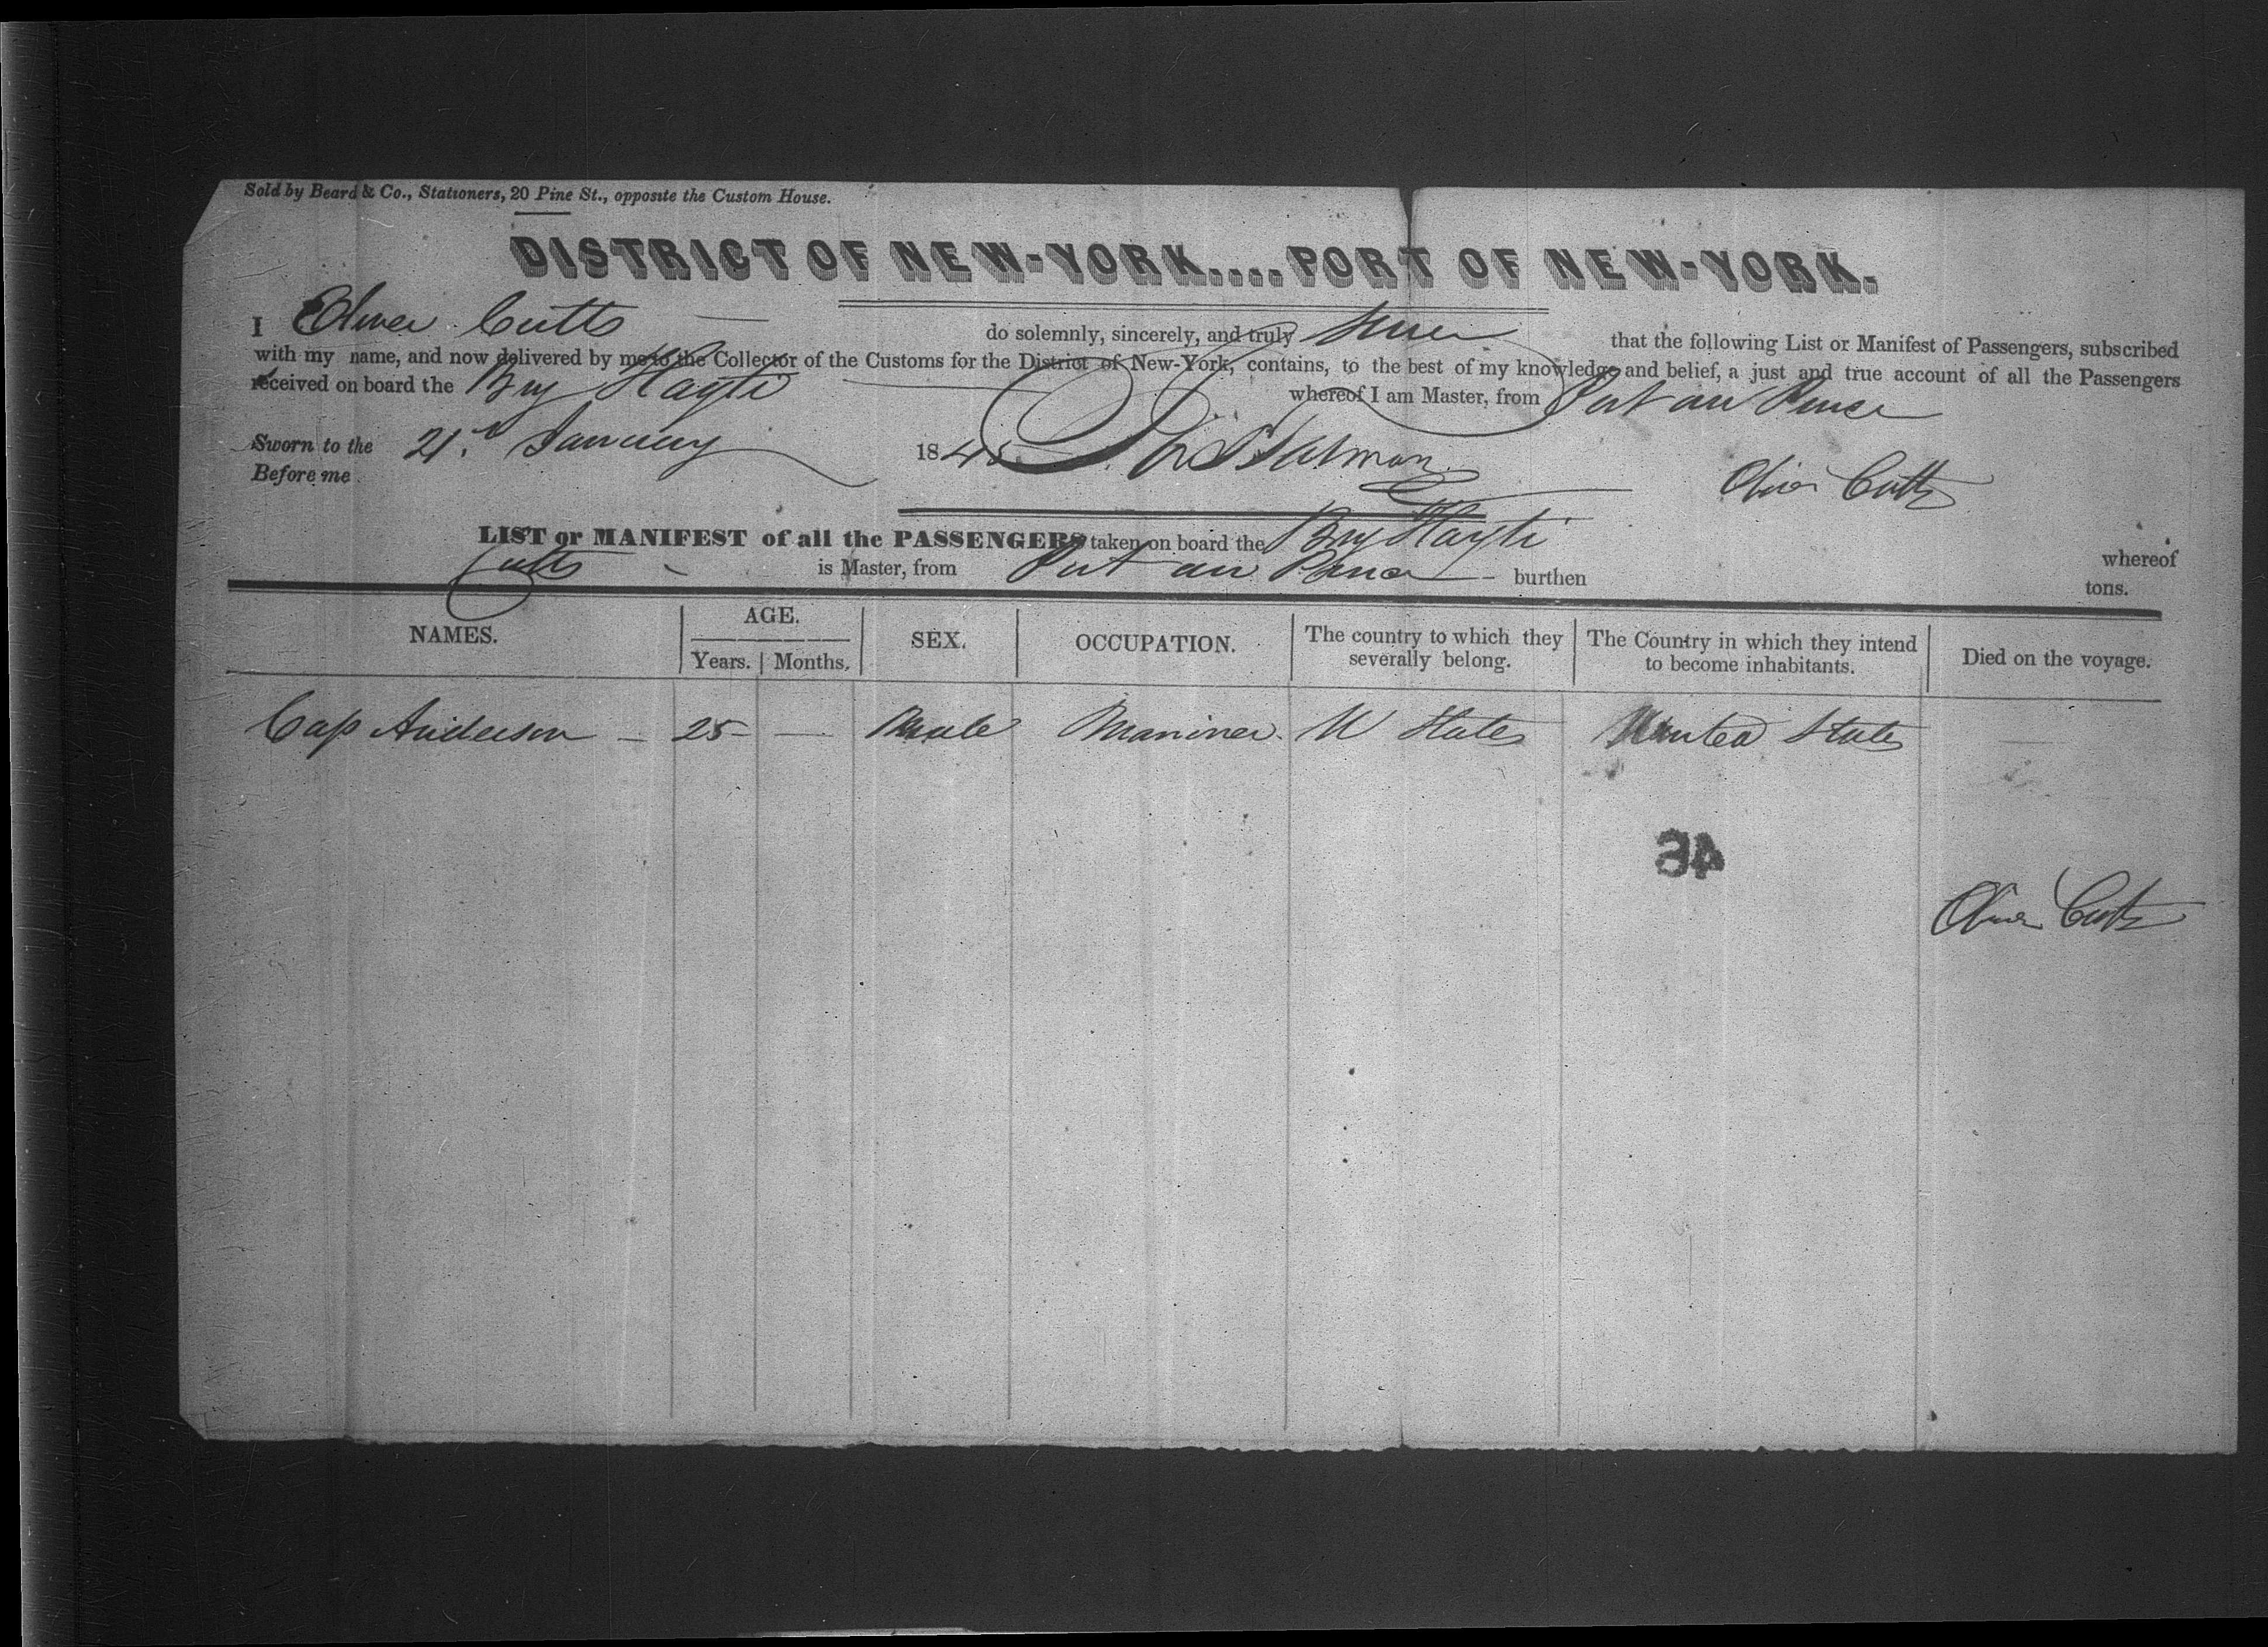 Sold by Beard & Co., Stationers, 20 Pine St., opposite the Custom House.
DISTRICT OF NEW-YORK....PORT OF NEW-YORK.
I Oliver Cutts do solemnly, sincerely, and truly swear that the following List or Manifest of Passengers, subscribed
with my name, and now delivered by me to the Collector of the Customs for the District of New-York, contains, to the best of my knowledge and belief, a just and true account of all the Passengers
received on board the Brig Hayti whereof I am Master, from Port au Prince
Sworn to the 21st January 1845
Before me Oliver Cutts
LIST or MANIFEST of all the PASSENGERS taken on board the Brig Hayti whereof
Cutts is Master, from Port au Prince burthen tons.
NAMES. AGE. SEX. OCCUPATION. The country to which they severally belong. The Country in which they intend to become inhabitants. Died on the voyage.
Years. Months.
Cap Anderson – 25 — Male Mariner. U States United States
34
Oliver Cutts